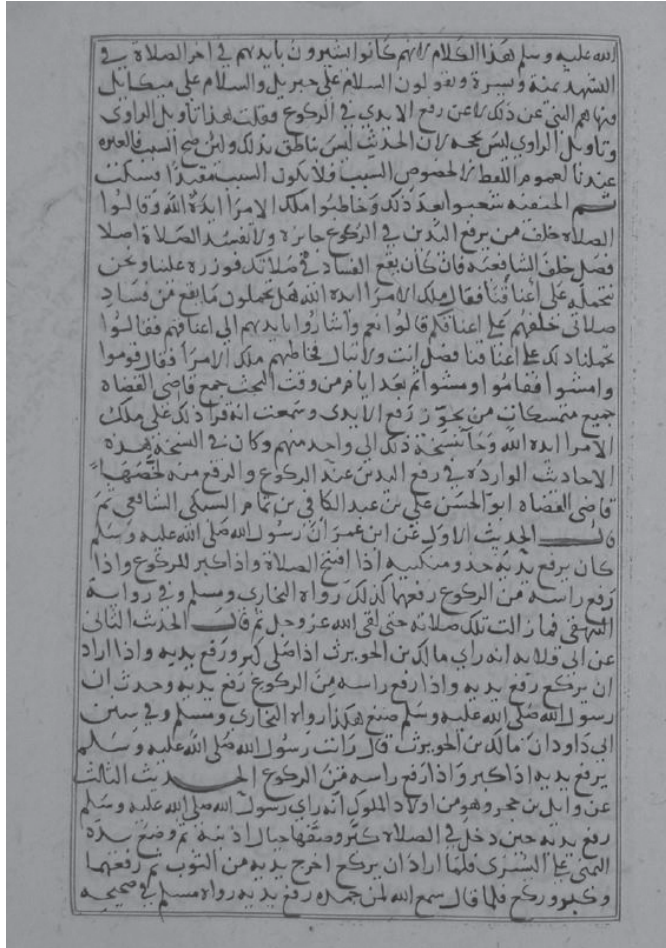 الله عليه وسلم هذا الكلام لانهم كانوا يشيرون بايديهم في اخر الصلاة في
التشهد يمنة ويسرة ويقولون السلام على جبريل والسلام على ميكايل
فنهاهم النبي عن ذلك لا عن رفع الايدي في الركوع فقلت هذا تاويل الراوي
وتاويل الراوي ليس بحجه لان الحديث ليس ناطق بذلك ولين صح السبب فالعبره
عندنا لعموم اللفظ لا لخصوص السبب فلا يكون السبب مقيدا فسكت
ثم الحنفيه تعصبوا بعد ذلك وخاطبوا ملك الامرا ايده الله وقالوا
الصلاه خلف من يرفع اليدين في الركوع جايزه ولا تفسد الصلاة اصلا
فصل خلف الشافعيه فان كان يقع الفساد في صلاتك فوزره علينا ونحن
نتحمله على اعناقنا فقال ملك الامرا ايده الله هل تحملون ما يقع من فساد
صلاتي خلفهم على اعناقكم قالوا نعم واشاروا بايديهم الى اعناقهم فقالوا
تحملنا ذلك على اعناقنا فصل انت ولا تبال فخاطبهم ملك الامرا فقال قوموا
وامشوا فقاموا ومشوا ثم بعد ايام من وقت البحث جمع قاضي القضاه
جميع متمسكات من يجوز رفع الايدي وسمعت انه قرا ذلك على ملك
الامرا ايده الله وجا نسخة ذلك الى واحد منهم وكان في النسخة هذه
الاحاديث الوارده في رفع اليدين عند الركوع والرفع منه لخصها
قاضي القضاه ابو الحسن علي بن عبد الكافي بن تمام السبكي الشافعي ثم
قال الحديث الاول عن ابن عمر ان رسول الله صلى الله عليه وسلم
كان يرفع يديه حذو منكبيه اذا افتتح الصلاة واذا كبر للركوع واذا
رفع راسه من الركوع رفعها كذلك رواه البخاري ومسلم وفي رواية
البيهقي فما زالت تلك صلاته حتى لقي الله عز وجل ثم قال الحديث الثاني
عن ابي قلابه انه راي مالك بن الحويرث اذا صلى كبر ورفع يديه واذا اراد
ان يركع رفع يديه واذا رفع راسه من الركوع رفع يديه وحدث ان
رسول الله صلى الله عليه وسلم صنع هكذا رواه البخاري ومسلم وفي سنن
ابي داود ان مالك بن الحويرث قال رايت رسول الله صلى الله عليه وسلم
يرفع يديه اذا كبر واذا رفع راسه من الركوع الحديث الثالث
عن وايل بن حجر وهو من اولاد الملوك انه راي رسول الله صلى الله عليه وسلم
رفع يديه حين دخل في الصلاه كبر وصفها حيال اذنيه ثم وضع يده
اليمنى على اليسرى فلما اراد ان يركع اخرج يديه من الثوب ثم رفعهما
وكبر وركع فلما قال سمع الله لمن حمده رفع يديه رواه مسلم في صحيحه